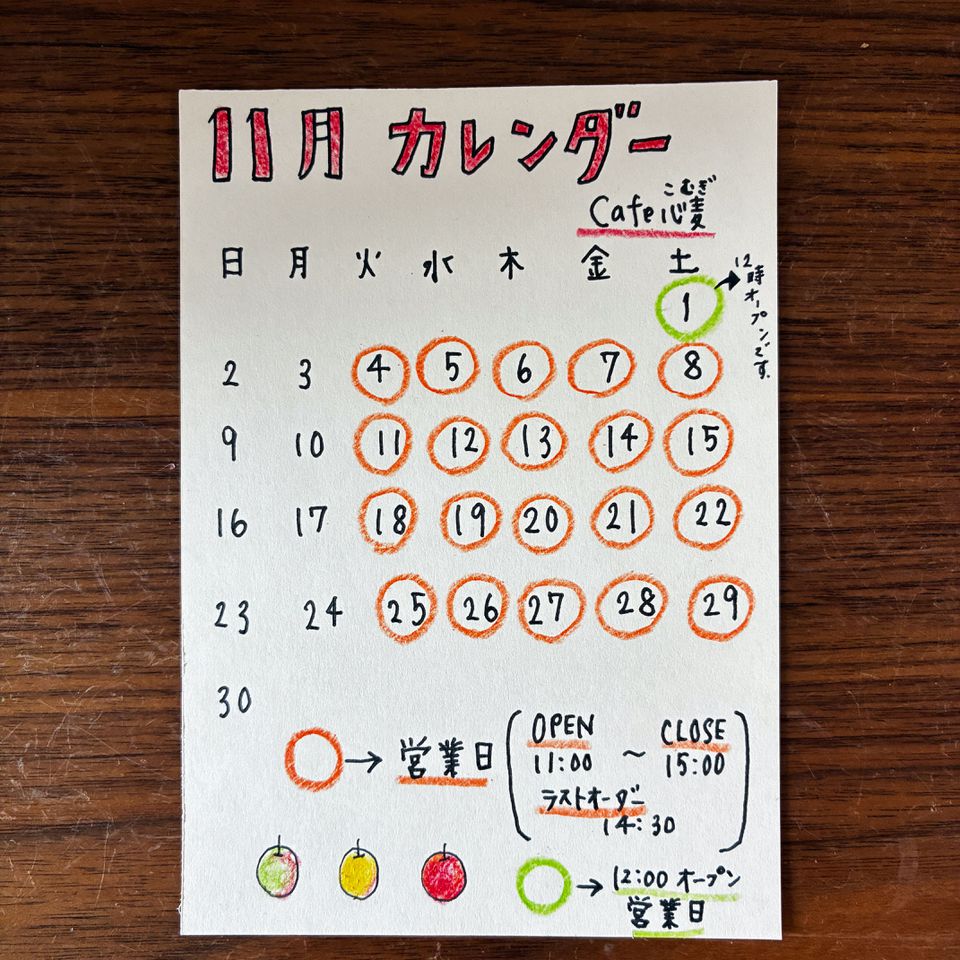 11月 カレンダー
こむぎ
Cafe 心麦
日 月 火 水 木 金 土
1
12時オープンです。
2 3 4 5 6 7 8
9 10 11 12 13 14 15
16 17 18 19 20 21 22
23 24 25 26 27 28 29
30
→ 営業日
OPEN ～ CLOSE
11:00 15:00
ラストオーダー
14:30
→ 12:00 オープン
営業日